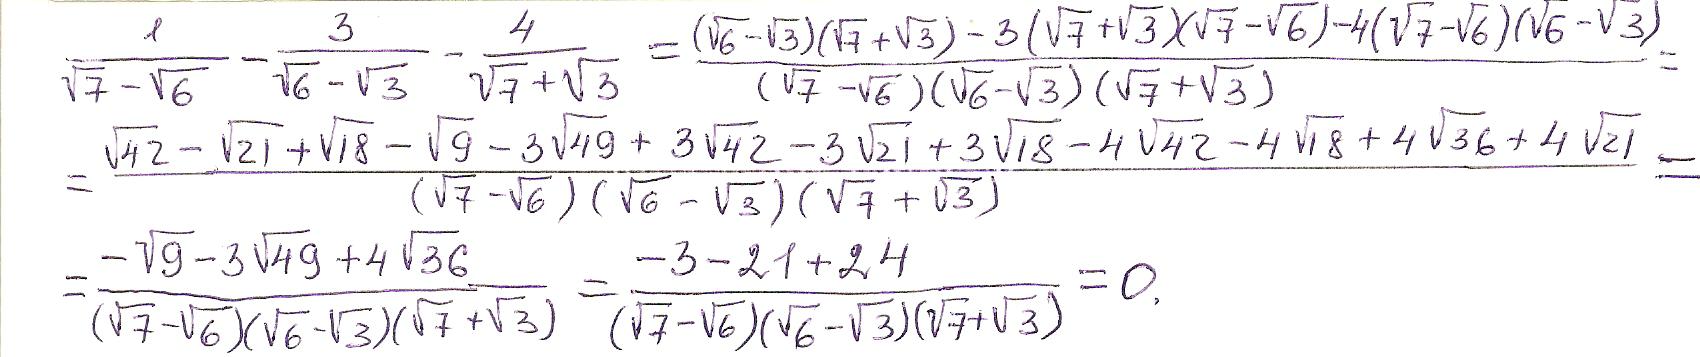 1/(√7 − √6) − 3/(√6 − √3) − 4/(√7 + √3) = ((√6 − √3)(√7 + √3) − 3(√7 + √3)(√7 − √6) − 4(√7 − √6)(√6 − √3))/((√7 − √6)(√6 − √3)(√7 + √3)) =
= (√42 − √21 + √18 − √9 − 3√49 + 3√42 − 3√21 + 3√18 − 4√42 − 4√18 + 4√36 + 4√21)/((√7 − √6)(√6 − √3)(√7 + √3)) =
= (−√9 − 3√49 + 4√36)/((√7 − √6)(√6 − √3)(√7 + √3)) = (−3 − 21 + 24)/((√7 − √6)(√6 − √3)(√7 + √3)) = 0.